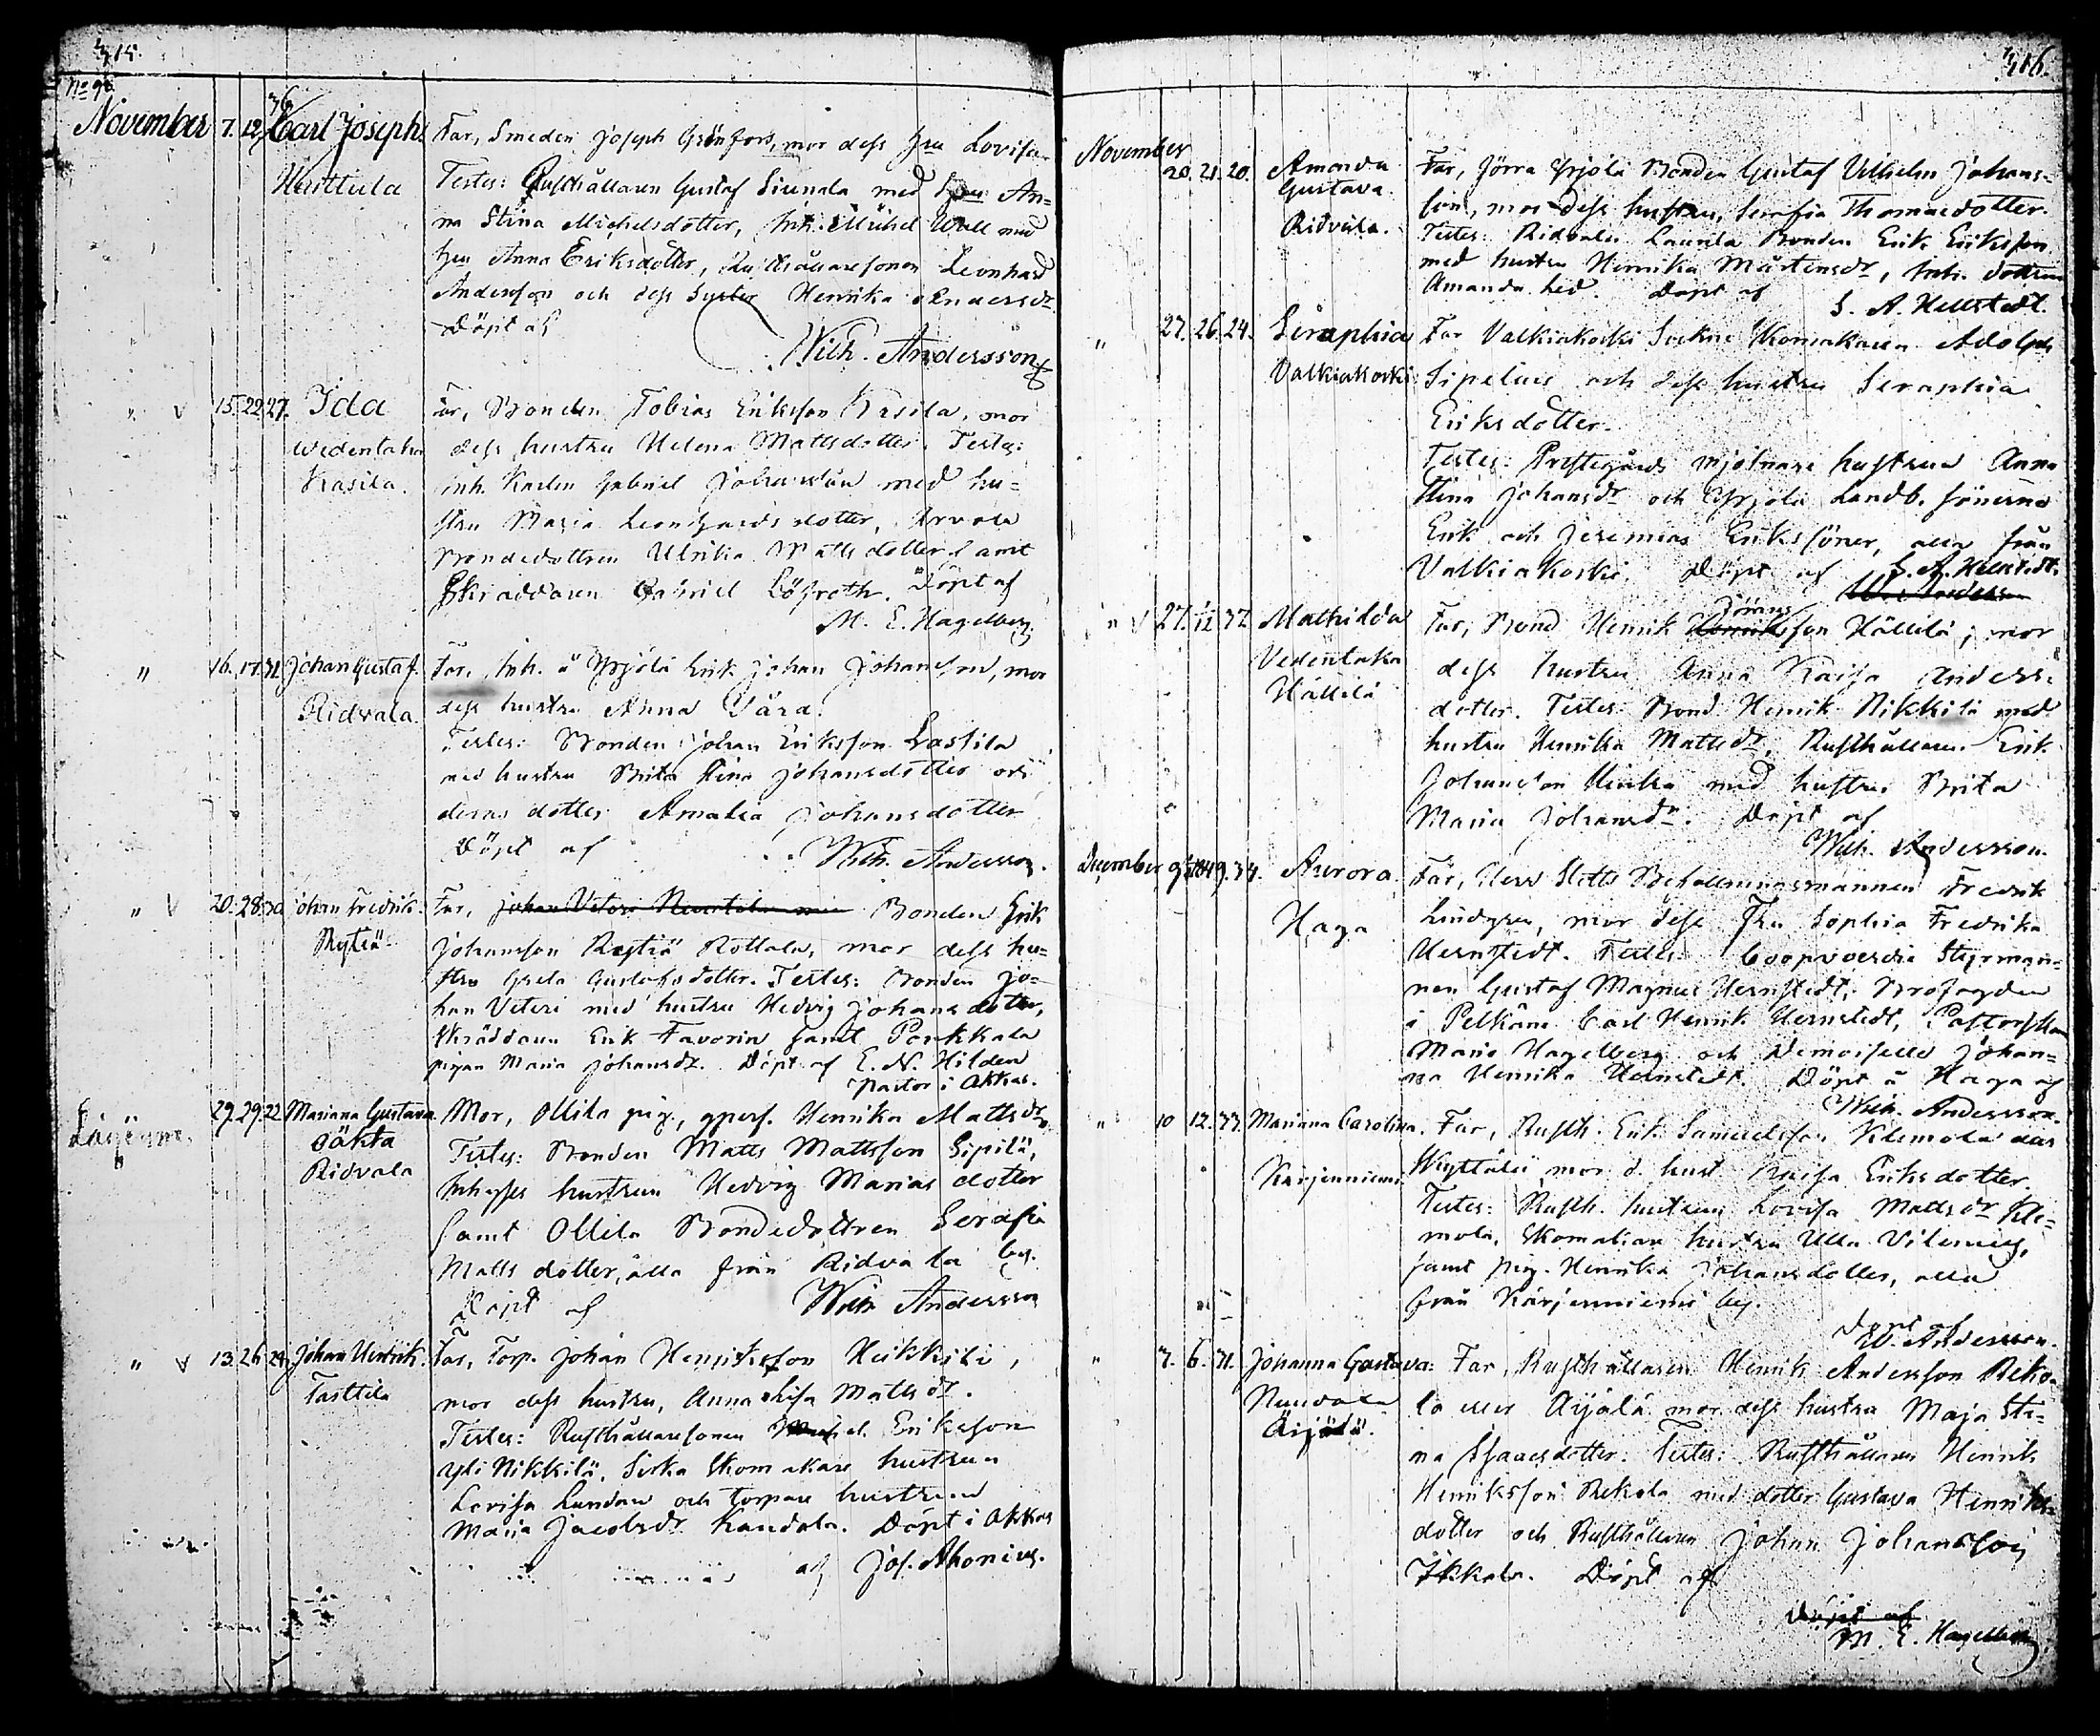 415.
No 96.
November 7. 12. 36 Carl Joseph. Far, Smeden Joseph Grönfors, mor dess hru Lovisa
Huittula Testes: Rusthållaren Gustaf Siunala med hru An=
na Stina Michelsdotter, Inh. Michel Wall med
hru Anna Eriksdotter, Rusthållaresonen Leonhard
Andersson och dess syster Henrika Andersdr
Döpt af
Wilh. Andersson
" v 15. 22. 27. Ida Far, Bonden Tobias Eriksson Kasila, mor
Wedentaka dess hustru Helena Mattsdotter. Testes:
Kasila. Inh. Karlen Gabriel Johansson med hu=
stru Maria Leonhardsdotter, Arvola
Bondedottren Ulrika Mattsdotter samt
Skräddaren Gabriel Löfroth. Döpt af
M. E. Hagelberg.
" 16. 17. 31. Johan Gustaf. Far, Inh. å Yrjölä Erik Johan Johansson, mor
Ridvala. dess hustru Anna Sara.
Testes: Bonden Johan Eriksson Lassila
med hustru Brita Stina Johansdotter och
deras dotter Amalia Johansdotter
Döpt af Wilh. Andersson.
" v 20. 28. 30. Johan Fredrik. Far, Bonden Erik
Rytiä Johansson Rytiä Rottala, mor dess hu=
stru Greta Gustafsdotter. Testes: Bonden Jo=
han Uteri med hustru Hedvig Johansdotter,
Skräddaren Erik Favorin samt Pankkala
pigan Maria Johansdr. Döpt af E. N. Hilden
Pastor i Akkas.
29. 29. 22. Mariana Gustava Mor, Ollila pig. Henrika Mattsdr
oäkta Testes: Bonden Matts Mattsson Sipilä,
Ridvala Inhyses hustrun Hedvig Mariasdotter
samt Ollila Bondedottren Serafia
Mattsdotter, alla från Ridvala by.
Döpt af Wilh Andersson
" v 13. 26. 24. Johan Henrik. Far, Torp. Johan Henriksson Heikkilä,
Tarttila mor dess hustru, Anna Lisa Mattsdr.
Testes: Rusthållaresonen Eriksson
Yli Nikkilä, Sockn Skomakare hustrun
Lovisa Lundan och torpare hustrun
Maria Jacobsdr Kandola. Döpt i Akkas
af Jos. Ahonius.
416.
November
20. 21. 20. Amanda Far, Jörra Yrjölä Bonden Gustaf Vilhelm Johans=
Gustava. son, mor dess hustru, Serafia Thomasdotter.
Ridvala. Testes: Ridvala Laurila Bonden Erik Eriksson
med hustru Henrika Mårtensdr, Inh. dottren
Amanda Lid. Döpt af S. A. Hellstedt.
" 27. 26. 24. Seraphia Far Valkiakoski Sockne Skomakaren Adolph
Valkiakoski Sipelius och dess hustru Seraphia
Eriksdotter.
Testes: Prestegårds mjölnare hustrun Anna
Stina Johansdr och Yrjölä Landb. sönerna
Erik och Jeremias Erikssöner, alla från
Valkiakoski. Döpt af S. A. Hellstedt.
" v 27. 1/12 37. Mathilda Far, Bond Henrik Jöransson Hällilä, mor
Vedentaka dess hustru Anna Kaisa Anders=
Hällilä dotter. Testes: Bond Henrik Nikkilä med
hustru Henrika Mattsdr, Rusthållaren Erik
Johansson Uschka med hustru Brita
Maria Johansdr. Döpt af
Wilh. Andersson.
December 9. 34. Aurora. Far, Herr Slotts Befallningsmannen Fredrik
Haga Lindgren, mor dess Fru Sophia Fredrika
Hernstedt. Testes: Coopvaerdie Styrman=
nen Gustaf Magnus Hernstedt, Brofogden
i Pelkäne Carl Henrik Hernstedt, Pastorskan
Maria Hagelberg och Demoiselle Johan=
na Henrika Hernstedt. Döpt å Haga af
Wilh. Andersson.
" 10 12. 33. Mariana Carolina. Far, Rusth. Erik Samuelsson Klemola eller
Kärjenniemi Kyttälä, mor d. hust Kaisa Eriksdotter.
Testes: Rusth. hustrun Lovisa Mattsdr Kle=
mola, Skomakare hustrun Ulla Vilenius,
samt pig. Henrika Johansdotter, alla
från Kärjenniemi by.
Döpt af
W. Andersson.
" 7. 6. 31. Johanna Gustava: Far, Rusthållaren Henrik Andersson Reko=
Nuudala la eller Äijälä mor dess hustru Maja Sti=
Äijälä. na Isaacsdotter. Testes: Rusthållaren Henrik
Henriksson Rekola med dotter Gustava Henriks=
dotter och Rusthållaren Johan Johansson
Ikkala. Döpt af
M. E. Hagelberg